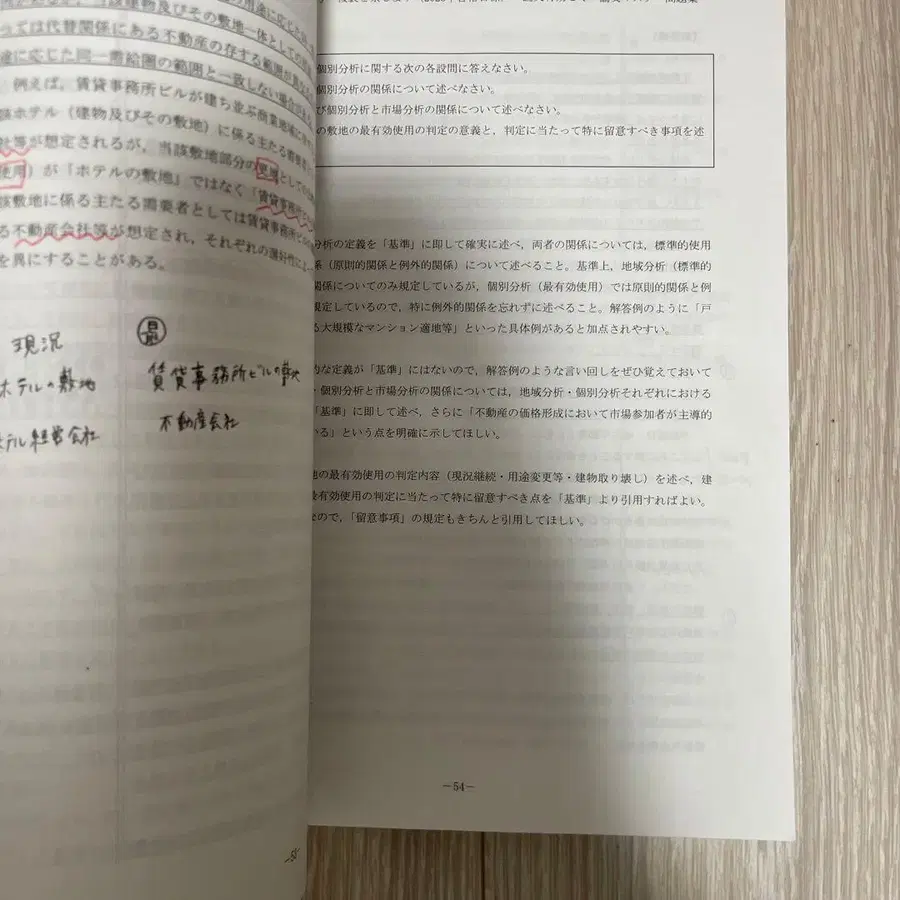 の用途に応じた同
当該建物及びその敷地一体としての
らでは代替関係にある不動産の存する範囲が
に応じた同一需給圏の範囲と一致しない場合
例えば，賃貸事務所ビルが建ち並ぶ商業地域に
ホテル（建物及びその敷地）に係る主たる需要者
社等が想定されるが，当該敷地部分の更地として
使用）が「ホテルの敷地」ではなく「賃貸事務所
該敷地に係る主たる需要者としては賃貸事務所ビル
る不動産会社等が想定され，それぞれの選好性に
を異にすることがある。
現況
最
ホテルの敷地
賃貸事務所ビルの敷地
ホテル経営会社
不動産会社
個別分析に関する次の各設問に答えなさい。
個別分析の関係について述べなさい。
び個別分析と市場分析の関係について述べなさい。
の敷地の最有効使用の判定の意義と，判定に当たって特に留意すべき事項を述
分析の定義を「基準」に即して確実に述べ，両者の関係については，標準的使用
係（原則的関係と例外的関係）について述べること。基準上，地域分析（標準的
関係についてのみ規定しているが，個別分析（最有効使用）では原則的関係と例
規定しているので，特に例外的関係を忘れずに述べること。解答例のように「戸
る大規模なマンション適地等」といった具体例があると加点されやすい。
的な定義が「基準」にはないので，解答例のような言い回しをぜひ覚えておいて
・個別分析と市場分析の関係については，地域分析・個別分析それぞれにおける
「基準」に即して述べ，さらに「不動産の価格形成において市場参加者が主導的
いる」という点を明確に示してほしい。
地の最有効使用の判定内容（現況継続・用途変更等・建物取り壊し）を述べ，建
最有効使用の判定に当たって特に留意すべき点を「基準」より引用すればよい。
なので，「留意事項」の規定もきちんと引用してほしい。
－54－